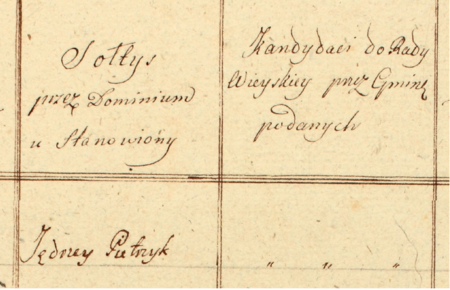 Sołtys
przez Dominium
ustanowiony
Kandydaci do Rady
Wieyskiey przez Gminę
podanych
Jędrzey Pietrzyk
„ „ „